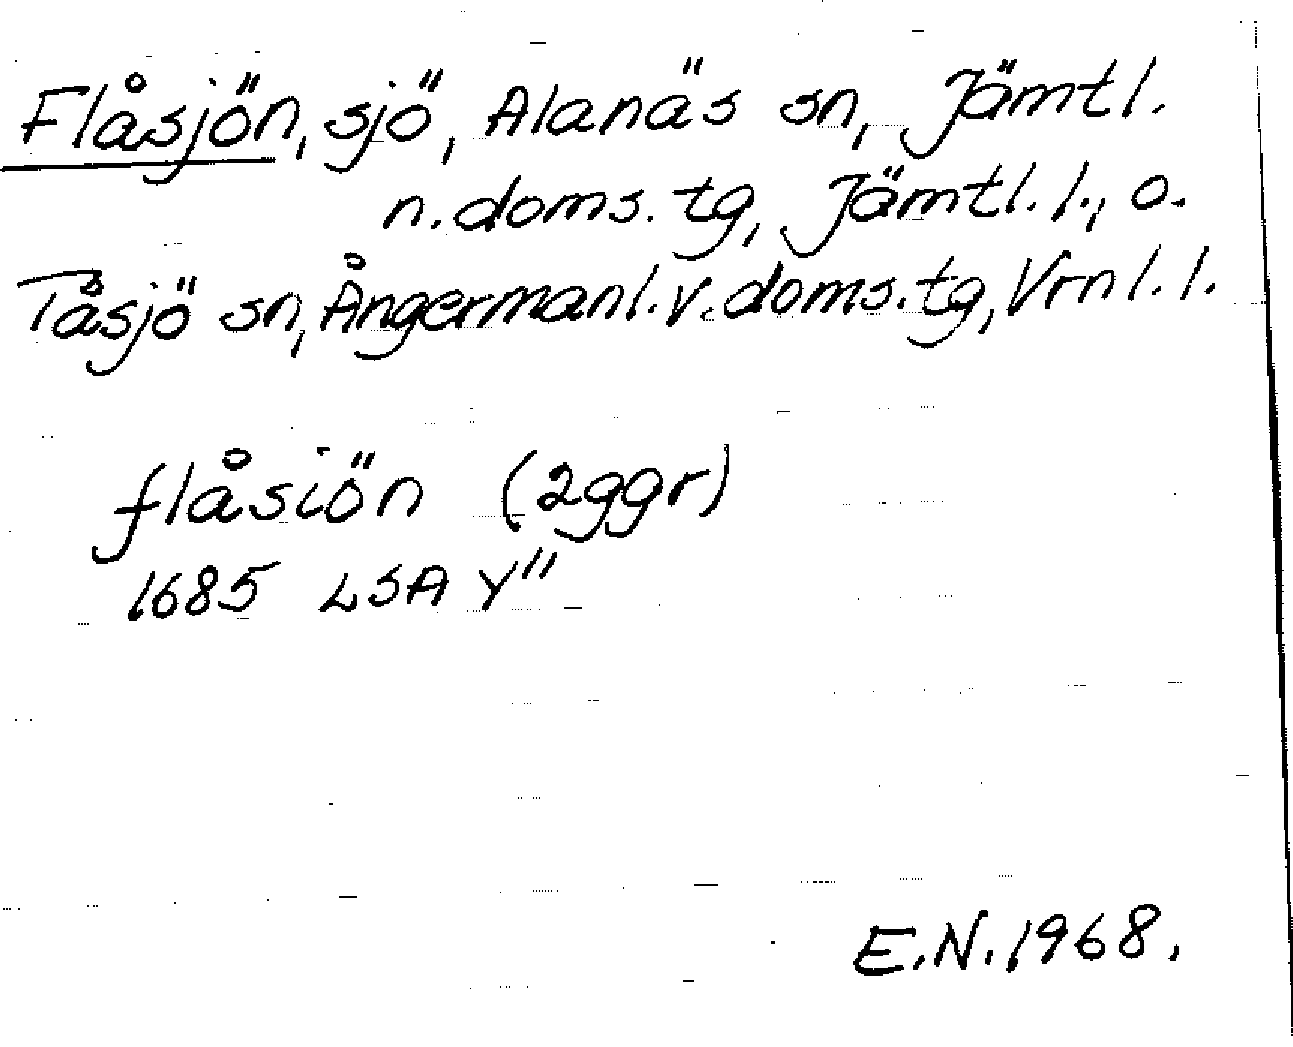 Flåsjön, sjö, Alanäs sn, Jämtl.
n. doms. tg, Jämtl. l., o.
Tåsjö sn, Ångermanl. v. doms. tg, Vrnl. l.
flåsiön (2ggr)
1685 LSA Y"
E.N. 1968.